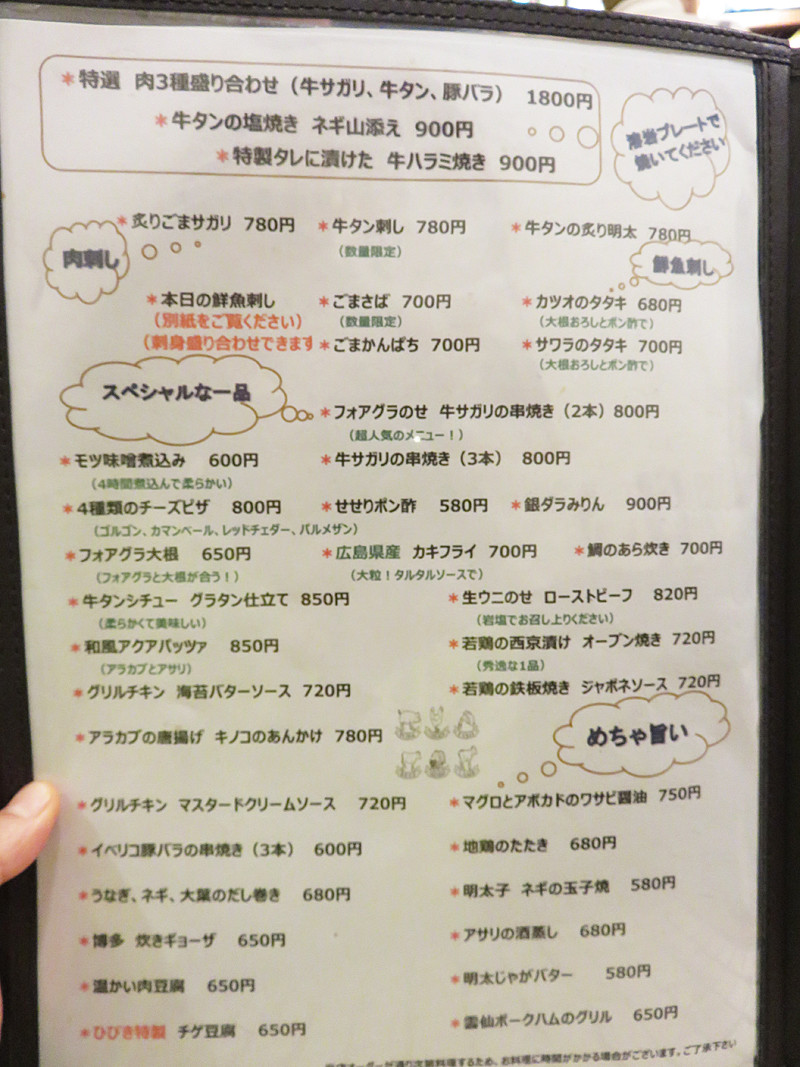 *特選 肉3種盛り合わせ（牛サガリ、牛タン、豚バラ） 1800円
*牛タンの塩焼き ネギ山添え 900円
*特製タレに漬けた 牛ハラミ焼き 900円
溶岩プレートで
焼いてください
肉刺し
*炙りごまサガリ 780円
*牛タン刺し 780円
（数量限定）
*牛タンの炙り明太 780円
鮮魚刺し
*本日の鮮魚刺し
（別紙をご覧ください）
（刺身盛り合わせできます
*ごまさば 700円
（数量限定）
*カツオのタタキ 680円
（大根おろしとポン酢で）
*ごまかんぱち 700円
*サワラのタタキ 700円
（大根おろしとポン酢で）
スペシャルな一品
*フォアグラのせ 牛サガリの串焼き（2本）800円
（超人気のメニュー！）
*モツ味噌煮込み 600円
（4時間煮込んで柔らかい）
*牛サガリの串焼き（3本） 800円
*4種類のチーズピザ 800円
（ゴルゴン、カマンベール、レッドチェダー、パルメザン）
*せせりポン酢 580円
*銀ダラみりん 900円
*フォアグラ大根 650円
（フォアグラと大根が合う！）
*広島県産 カキフライ 700円
（大粒！タルタルソースで）
*鯛のあら炊き 700円
*牛タンシチュー グラタン仕立て 850円
（柔らかくて美味しい）
*生ウニのせ ローストビーフ 820円
（岩塩でお召し上りください）
*和風アクアパッツァ 850円
（アラカブとアサリ）
*若鶏の西京漬け オーブン焼き 720円
（秀逸な1品）
*グリルチキン 海苔バターソース 720円
*若鶏の鉄板焼き ジャポネソース 720円
*アラカブの唐揚げ キノコのあんかけ 780円
めちゃ旨い
*グリルチキン マスタードクリームソース 720円
*マグロとアボカドのワサビ醤油 750円
*イベリコ豚バラの串焼き（3本） 600円
*地鶏のたたき 680円
*うなぎ、ネギ、大葉のだし巻き 680円
*明太子 ネギの玉子焼 580円
*博多 炊きギョーザ 650円
*アサリの酒蒸し 680円
*温かい肉豆腐 650円
*明太じゃがバター 580円
*ひびき特製 チゲ豆腐 650円
*雲仙ポークハムのグリル 650円
オーダーが通り定期料理するため、お料理に時間がかかる場合がございます。ご了承下さい